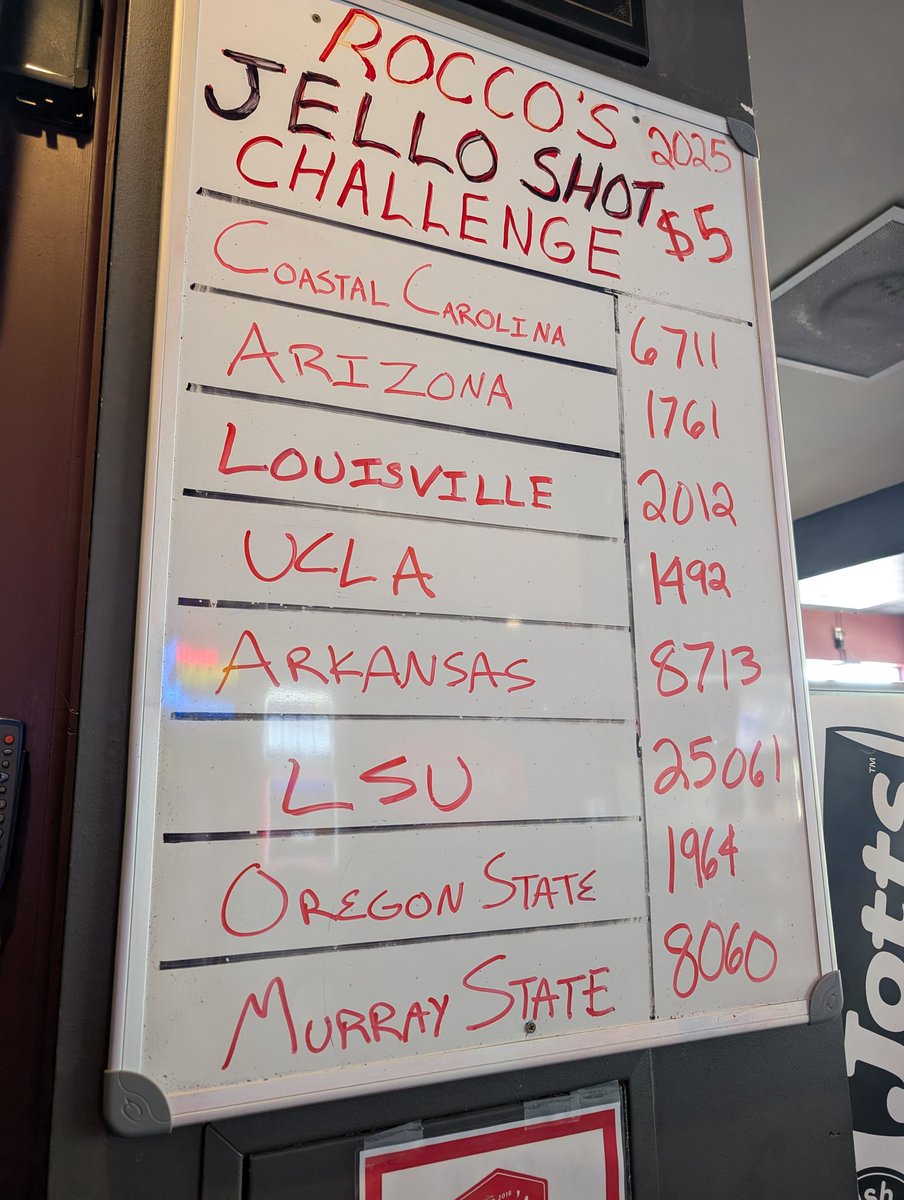 ROCCO'S 2025
JELLO SHOT $5
CHALLENGE
COASTAL CAROLINA 6711
ARIZONA 1761
LOUISVILLE 2012
UCLA 1492
ARKANSAS 8713
LSU 25061
OREGON STATE 1964
MURRAY STATE 8060
Jotts
TM
sh
2018